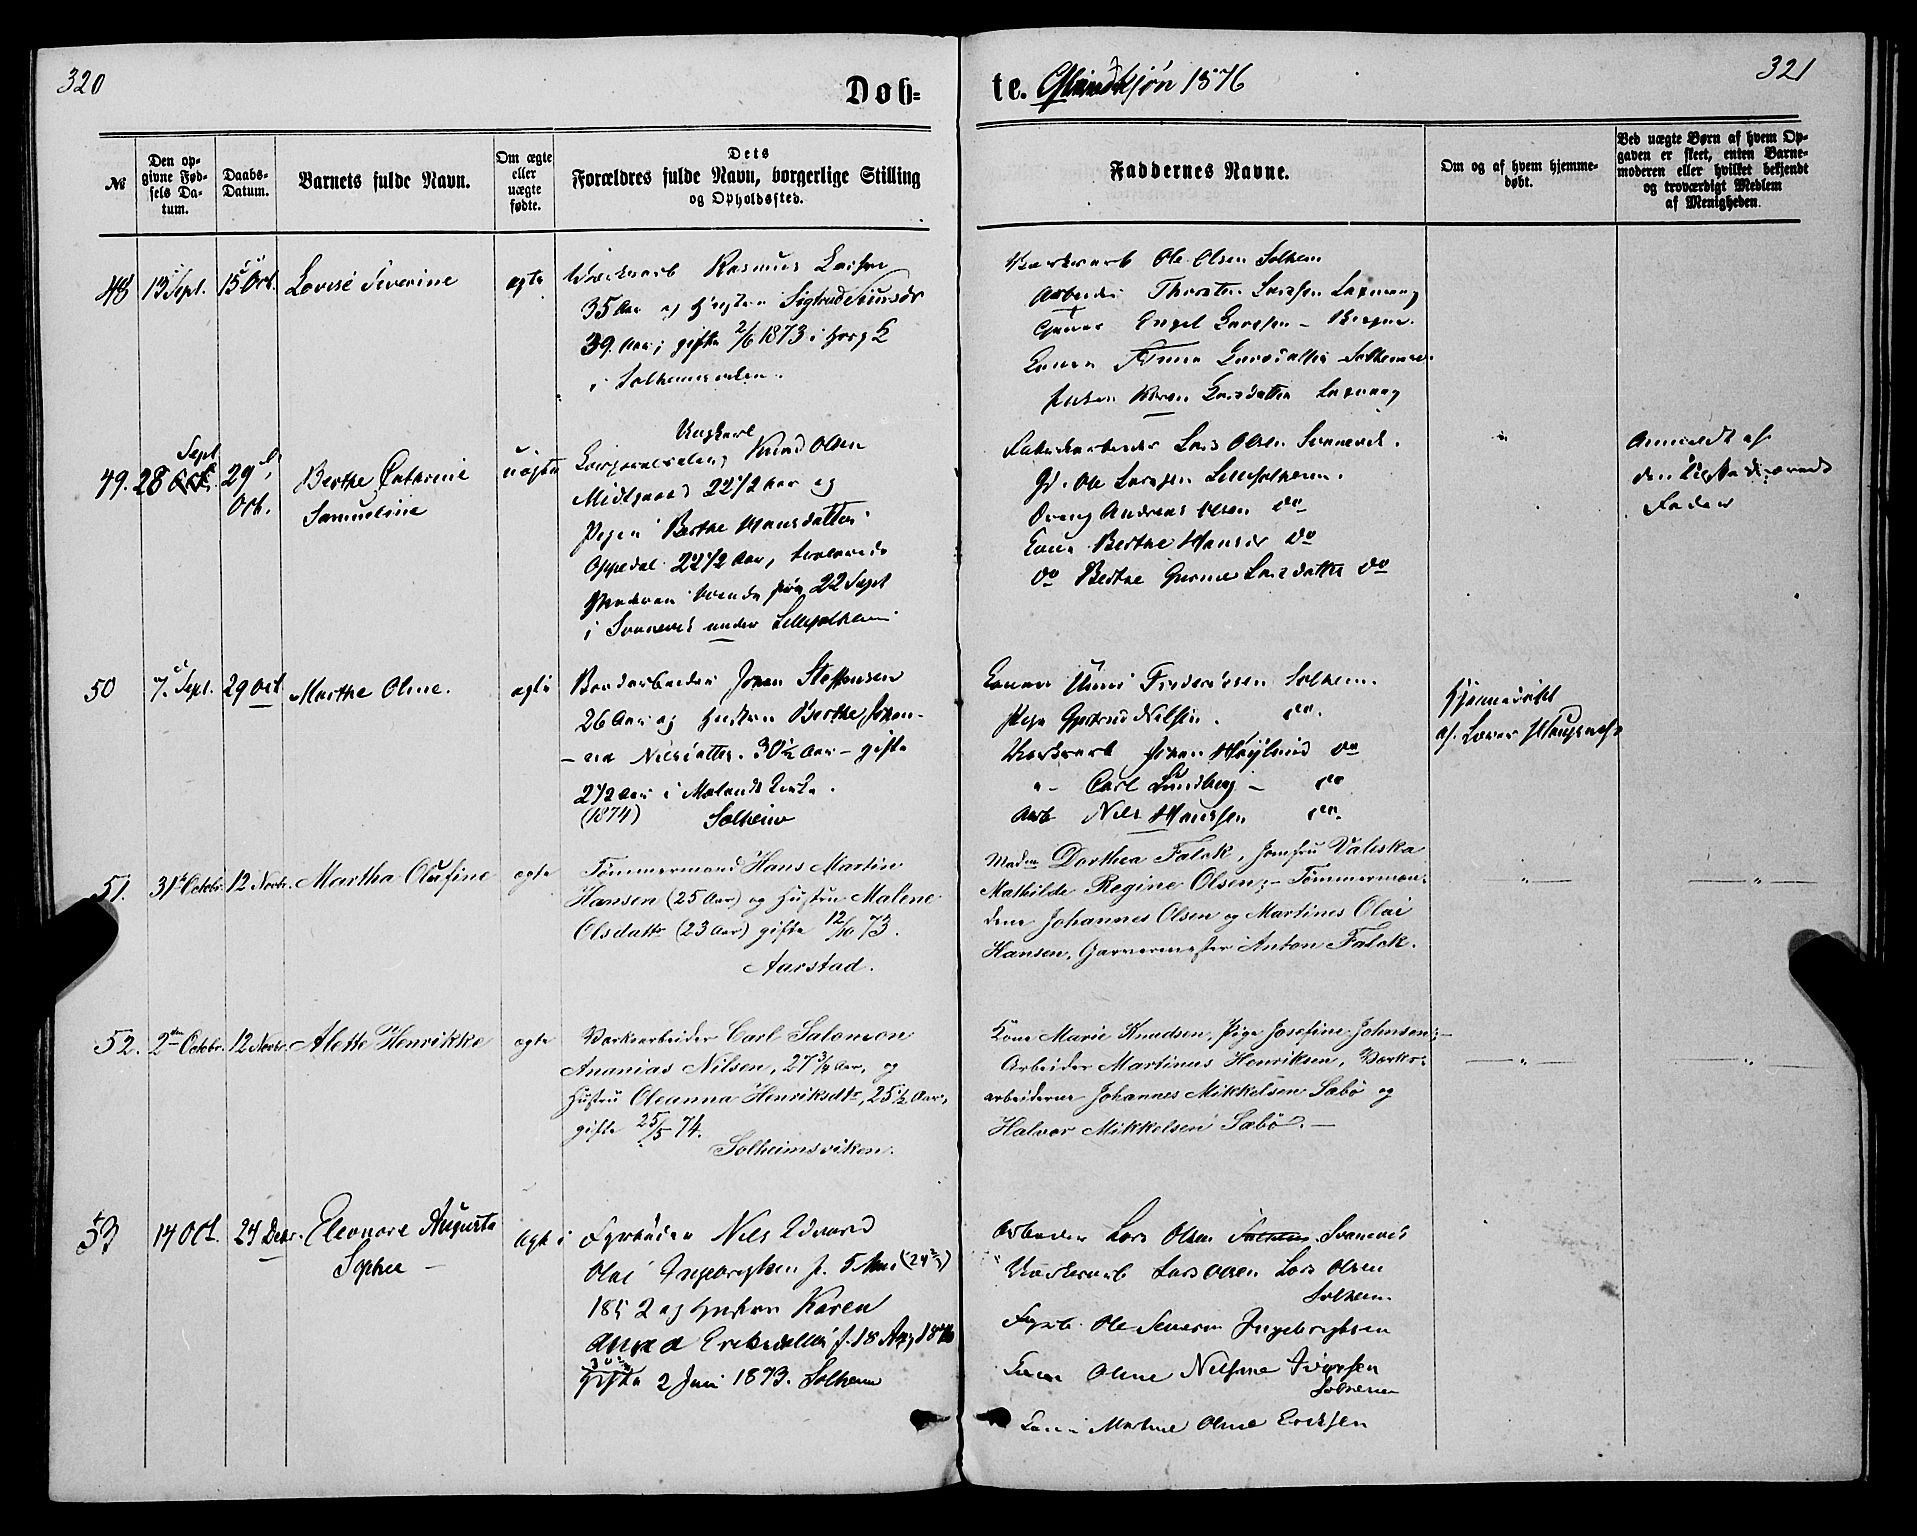 320
Døb-
te. Qvindekjøn 1876
321
№
Den op-
givne Fød-
sels Da-
tum.
Daabs-
Datum.
Barnets fulde Navn.
Om ægte
eller
uægte
fødte.
Dets
Forældres fulde Navn, borgerlige Stilling
og Opholdssted.
Faddernes Navne.
Om og af hvem hjemme-
døbt.
Ved uægte Børn af hvem Op-
gaven er skeet, enten Barne-
moderen eller hvilket bekjendt
og troværdigt Medlem
af Menigheden.
48 13 Sept. 15 Oct. Lovise Severine
ægte
Rasmus
35 Aar og Hustru Sigtrud
39 Aar, gifte 2/6 1873 i
i Solheimsviken.
Værksarb Ole Olsen Solhem
Arbeider Thorsten Larssen Laxevaag
Engel Larssen - Bergen.
Konen Anna Larsdatter Solhemsv.
Karen Larsdatter Laxevaag
49. 28 Sept. 29 Oct. Berthe Cathrine
Samueline
uægte
Ungkarl
Knud Olsen
Midtgaard 22 1/2 Aar og
Pigen Berthe Hansdatter
Oppedal 22 1/2 Aar,
boende 22 Sept
i Svanevik under Lillesolheim
Lars Olsen Svanevik.
Ole Larssen Lillesolheim.
Dreng Andreas Olsen do
Kone Berthe Hansdr do
do Berthe Gurine Larsdatter do
Anmeldt af
den
Fader
50 7. Sept. 29 Oct Marthe Oline.
ægte
Johan Steffensen
26 Aar og Hustru Berthe Johan-
-na Nilsdatter. 30 1/2 Aar - gifte
2 1/2 Aar i Malands Kirke.
(1874) Solheim
Konen Unni Frederiksen Solhem.
Pige Gjertrud Nilsen. do.
Værksarb Johan Høylund do
" - Carl Lundberg - do
Arb Nils Hanssen do.
Hjemmedøbt
af Lærer Haugsnes
51. 31te Octobr. 12 Novbr. Martha Olufine
ægte
Tømmermand Hans Martin
Hansen (25 Aar) og Hustru Malene
Olsdattr (23 Aar) gifte 12/10 73.
Aarstad.
Madm Dorthea Falck, Jomfru Valeska
Mathilde Regine Olsen; - Tømmermæn-
dene Johannes Olsen og Martines Olai
Hansen, Garvermester Anton Falck.
— " —
— " —
52. 2den Octobr. 12 Novbr. Alette Henrikke
ægte
Værksarbeider Carl Salomon
Ananias Nilsen, 27 3/4 Aar, og
Hustru Oleanna Henriksdtr, 25 1/2 Aar,
gifte 25/5 74.
Solheimsviken.
Kone Marie Knudsen, Pige Josefine Johnsen; -
Arbeider Martinus Henriksen, Værks-
arbeiderne Johannes Mikkelsen Sabø og
Halvor Mikkelsen Sabø. -
— " —
"
53 14 Oct. 24 Decbr. Eleonore Augusta
Sophie -
ægte
Fyrbøder Nils Edvard
Olai Ingebrigtsen f. 5 (24 2/3)
1852 og Hustru Karen
Anna Eriksdatter f. 18 Aug 1846
Gifte 2 Juni 1873. Solhem
Arbeider Lars Olsen Svanevik
Værksarb Lars Olsen Lars Olsen
Solhem.
Fyrb. Ole Severin Ingebrigtsen
Kone Oline Nilsine Iversen
Solhem
Kone Martine Oline Eriksen